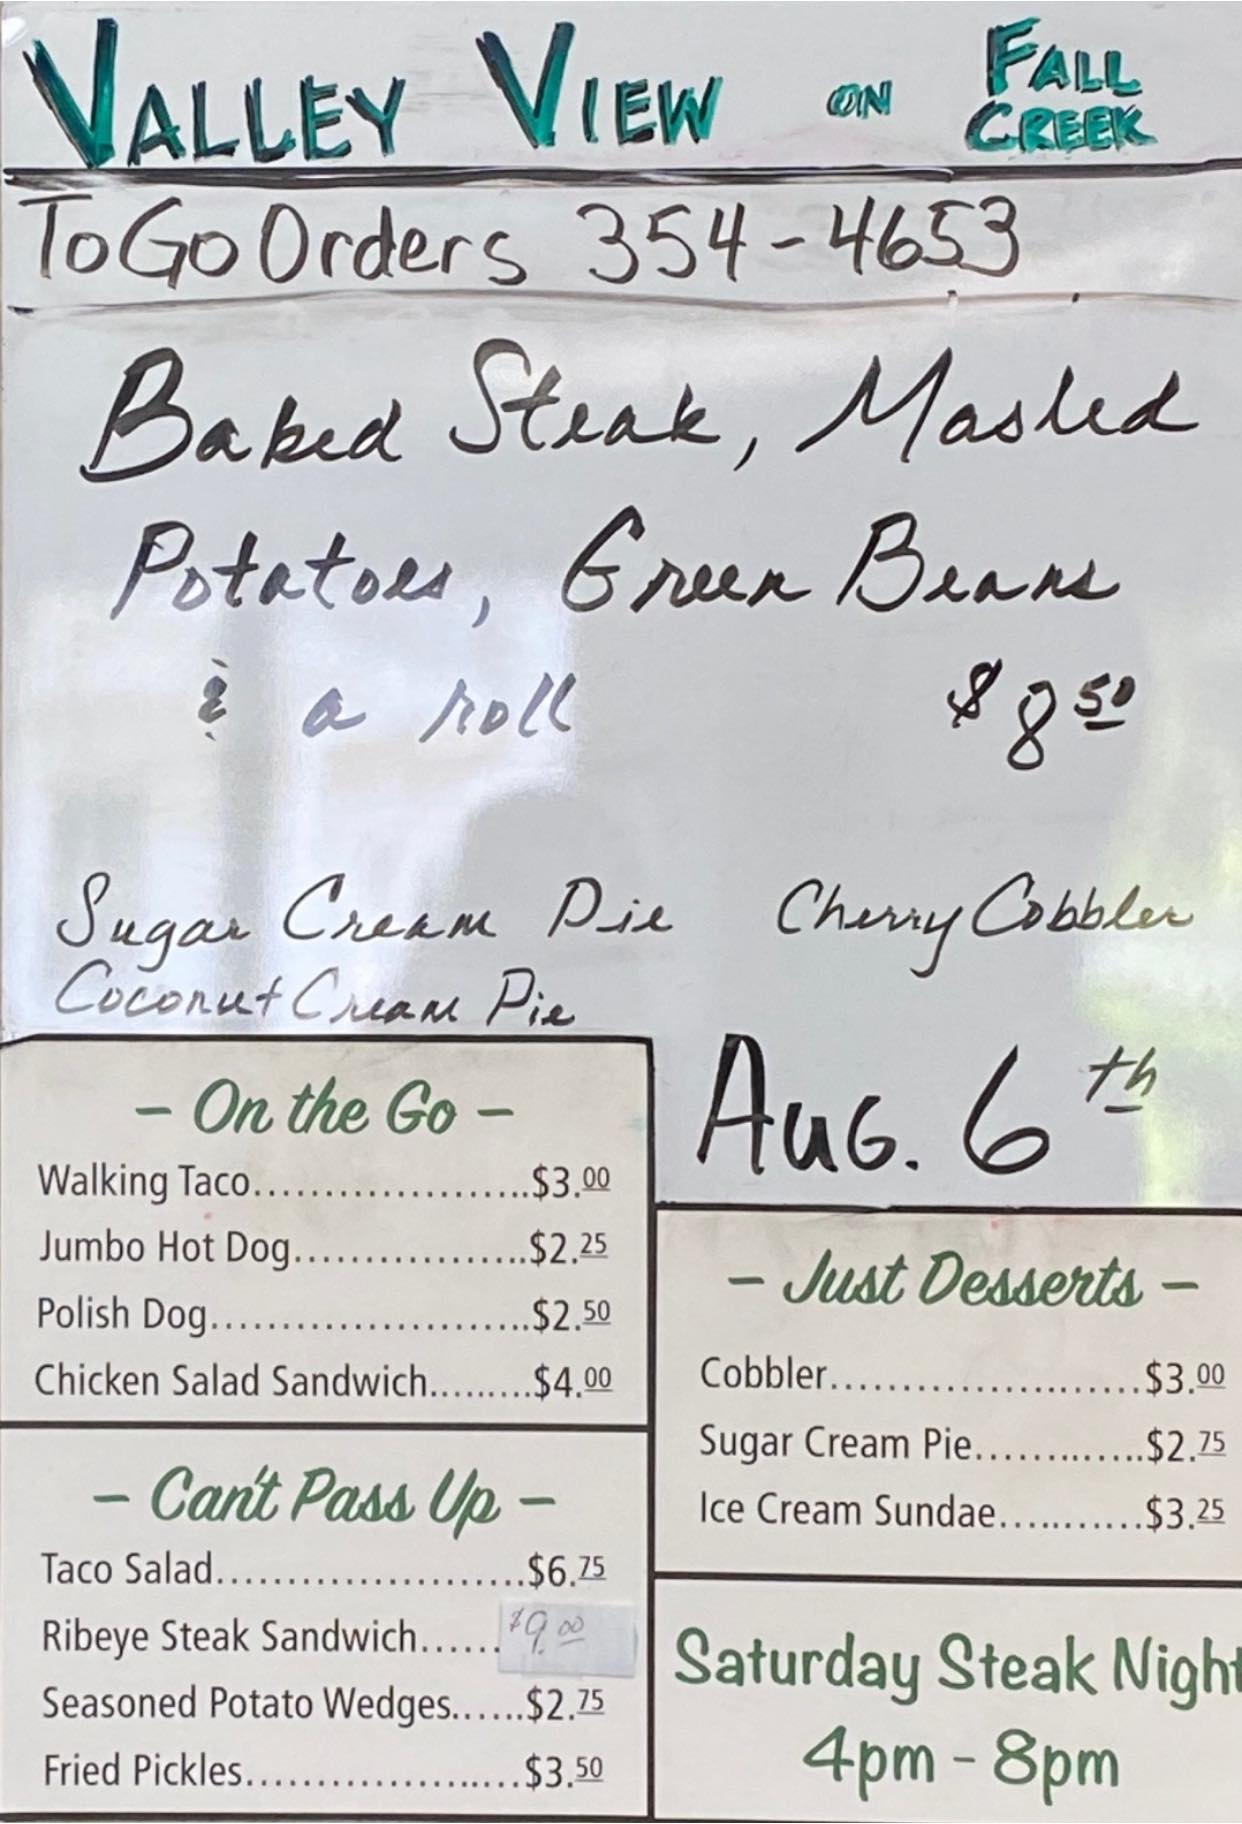 VALLEY VIEW ON FALL CREEK
To Go Orders 354-4653
Baked Steak, Mashed
Potatoes, Green Beans
& a roll $8.50
Sugar Cream Pie Cherry Cobbler
Coconut Cream Pie
Aug. 6th
- On the Go -
Walking Taco....................$3.00
Jumbo Hot Dog.................$2.25
Polish Dog.......................$2.50
Chicken Salad Sandwich.........$4.00
- Can't Pass Up -
Taco Salad......................$6.75
Ribeye Steak Sandwich...... $9.00
Seasoned Potato Wedges......$2.75
Fried Pickles....................$3.50
- Just Desserts -
Cobbler......................$3.00
Sugar Cream Pie............$2.75
Ice Cream Sundae...........$3.25
Saturday Steak Night
4pm - 8pm